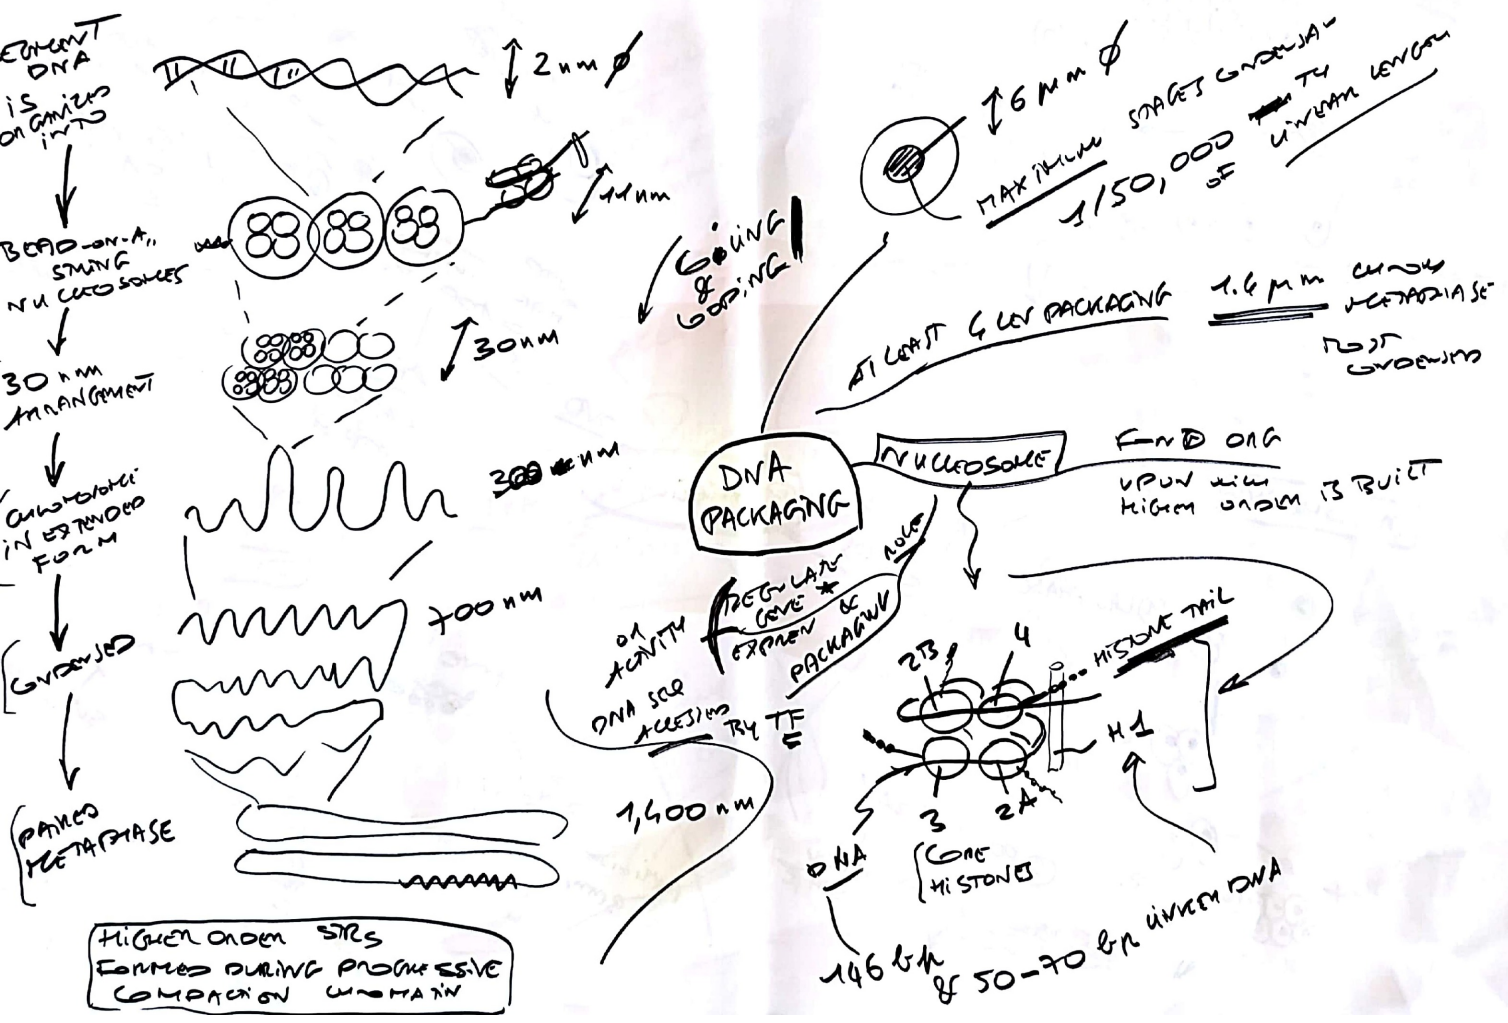 DNA
IS
ORGANIZED
INTO
BEAD-ON-A
STRING
NUCLEOSOMES
30 nm
ARRANGEMENT
IN EXTENDED
FORM
CONDENSED
PAIRED
METAPHASE
2 nm ∅
11 nm
30 nm
300 nm
700 nm
1,400 nm
HIGHER ORDER STRS
FORMED DURING PROGRESSIVE
COMPACTION CHROMATIN
COILING
&
LOOPING
6 μm ∅
MAXIMUM STAGES CONDENSA-
TH
1/50,000
OF LINEAR LENGTH
AT LEAST 4 LEV PACKAGING
1.4 μm CHROM
METAPHASE
MOST
CONDENSED
DNA
PACKAGING
NUCLEOSOME
FUND ORG
UPON WHICH
HIGHER ORDER IS BUILT
ROLE
REGULATE
GENE *
EXPREN &
PACKAGING
OR
ACTIVITY
DNA SEQ
ACCESSED
BY TF
2B
4
HISTONE TAIL
H1
3
2A
CORE
HISTONES
DNA
146 bp
& 50-70 bp LINKER DNA